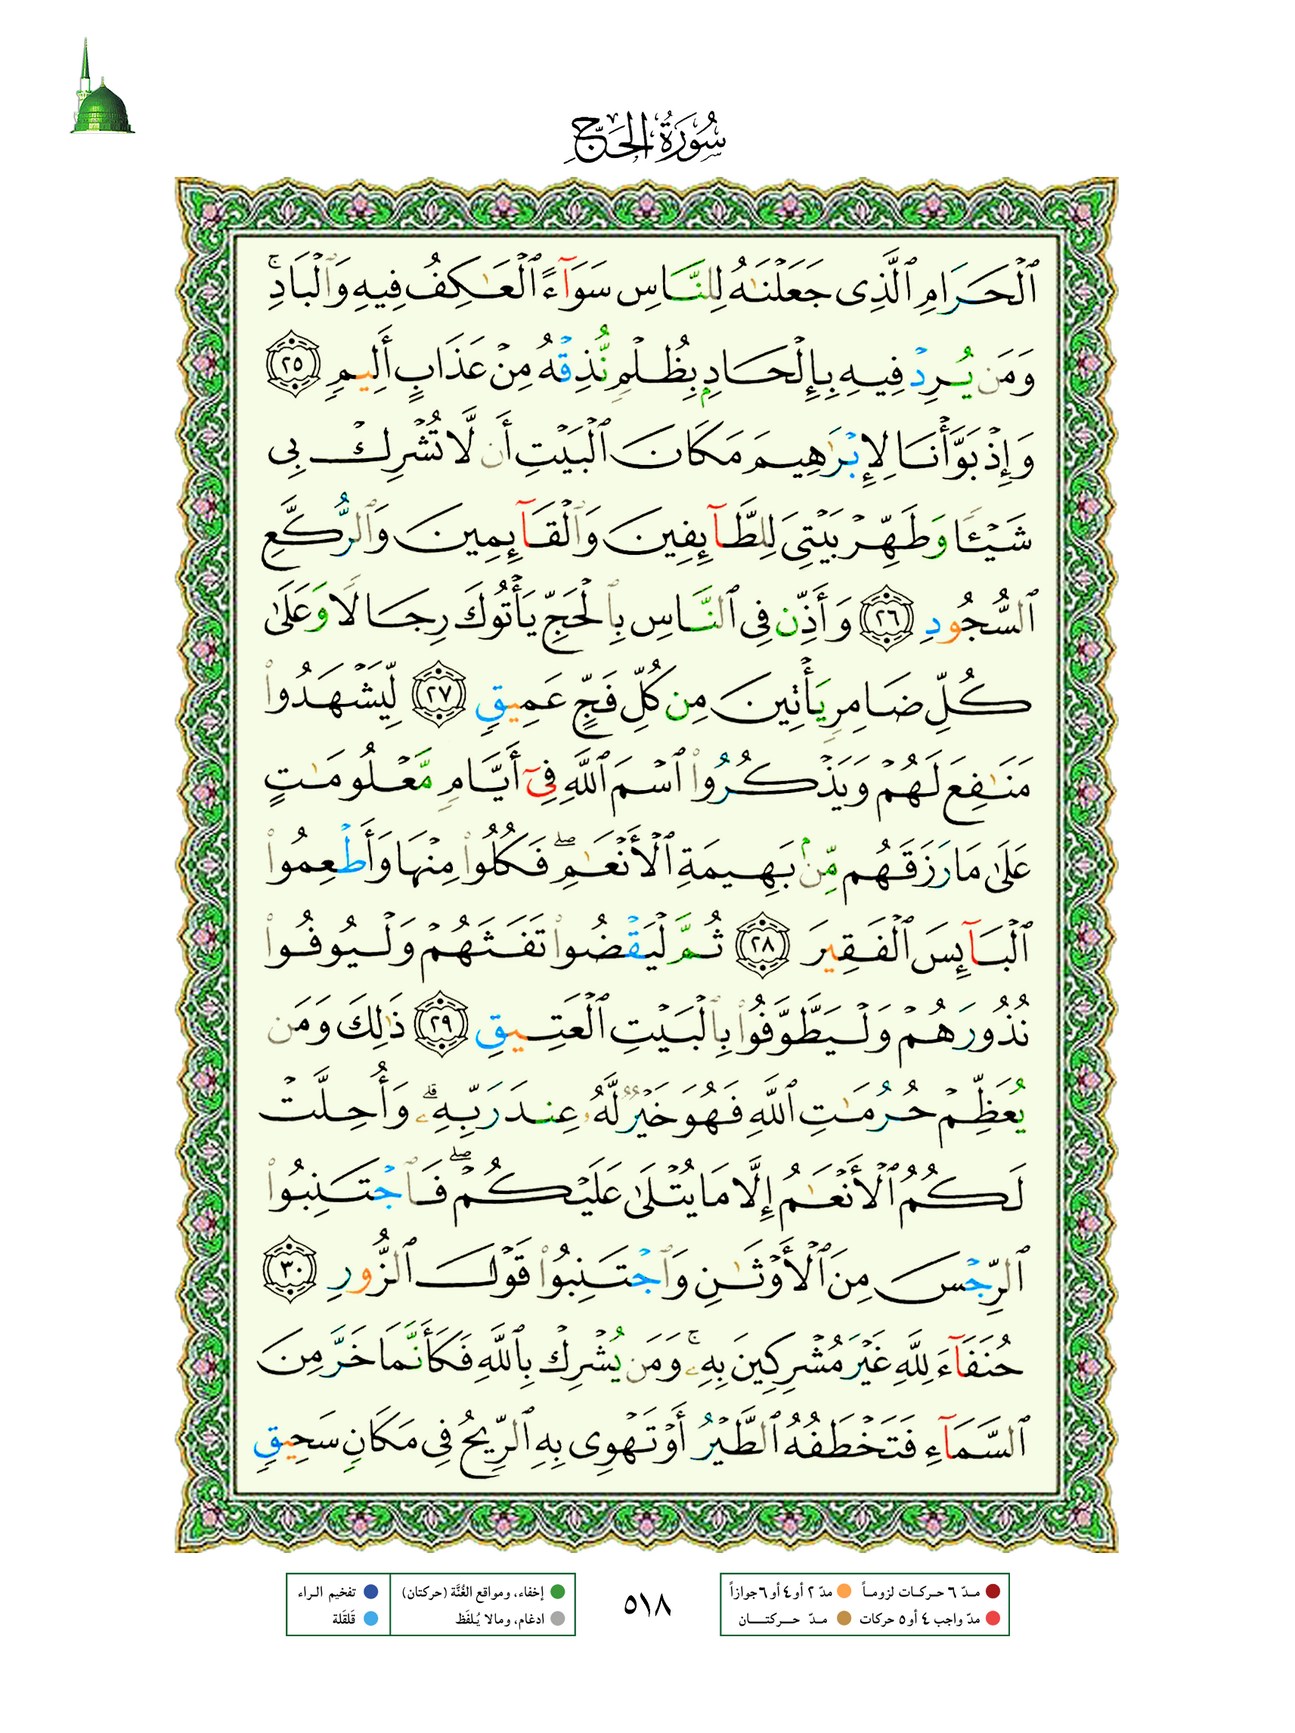 سُورَةُ الحَجِّ
ٱلْحَرَامِ ٱلَّذِى جَعَلْنَٰهُ لِلنَّاسِ سَوَآءً ٱلْعَٰكِفُ فِيهِ وَٱلْبَادِ ۚ
وَمَن يُرِدْ فِيهِ بِإِلْحَادٍۭ بِظُلْمٍ نُّذِقْهُ مِنْ عَذَابٍ أَلِيمٍ ٢٥
وَإِذْ بَوَّأْنَا لِإِبْرَٰهِيمَ مَكَانَ ٱلْبَيْتِ أَن لَّا تُشْرِكْ بِى
شَيْـًٔا وَطَهِّرْ بَيْتِىَ لِلطَّآئِفِينَ وَٱلْقَآئِمِينَ وَٱلرُّكَّعِ
ٱلسُّجُودِ ٢٦ وَأَذِّن فِى ٱلنَّاسِ بِٱلْحَجِّ يَأْتُوكَ رِجَالًا وَعَلَىٰ
كُلِّ ضَامِرٍ يَأْتِينَ مِن كُلِّ فَجٍّ عَمِيقٍ ٢٧ لِّيَشْهَدُوا۟
مَنَٰفِعَ لَهُمْ وَيَذْكُرُوا۟ ٱسْمَ ٱللَّهِ فِىٓ أَيَّامٍ مَّعْلُومَٰتٍ
عَلَىٰ مَا رَزَقَهُم مِّنۢ بَهِيمَةِ ٱلْأَنْعَٰمِ ۖ فَكُلُوا۟ مِنْهَا وَأَطْعِمُوا۟
ٱلْبَآئِسَ ٱلْفَقِيرَ ٢٨ ثُمَّ لْيَقْضُوا۟ تَفَثَهُمْ وَلْيُوفُوا۟
نُذُورَهُمْ وَلْيَطَّوَّفُوا۟ بِٱلْبَيْتِ ٱلْعَتِيقِ ٢٩ ذَٰلِكَ وَمَن
يُعَظِّمْ حُرُمَٰتِ ٱللَّهِ فَهُوَ خَيْرٌ لَّهُۥ عِندَ رَبِّهِۦ ۗ وَأُحِلَّتْ
لَكُمُ ٱلْأَنْعَٰمُ إِلَّا مَا يُتْلَىٰ عَلَيْكُمْ ۖ فَٱجْتَنِبُوا۟
ٱلرِّجْسَ مِنَ ٱلْأَوْثَٰنِ وَٱجْتَنِبُوا۟ قَوْلَ ٱلزُّورِ ٣٠
حُنَفَآءَ لِلَّهِ غَيْرَ مُشْرِكِينَ بِهِۦ ۚ وَمَن يُشْرِكْ بِٱللَّهِ فَكَأَنَّمَا خَرَّ مِنَ
ٱلسَّمَآءِ فَتَخْطَفُهُ ٱلطَّيْرُ أَوْ تَهْوِى بِهِ ٱلرِّيحُ فِى مَكَانٍ سَحِيقٍ
مدّ ٦ حركات لزوماً مدّ ٢ أو ٤ أو ٦ جوازاً
مدّ واجب ٤ أو ٥ حركات مدّ حركتان
٥١٨
إخفاء، ومواقع الغُنَّة (حركتان) تفخيم الراء
ادغام، ومالا يُلفَظ قلقلة